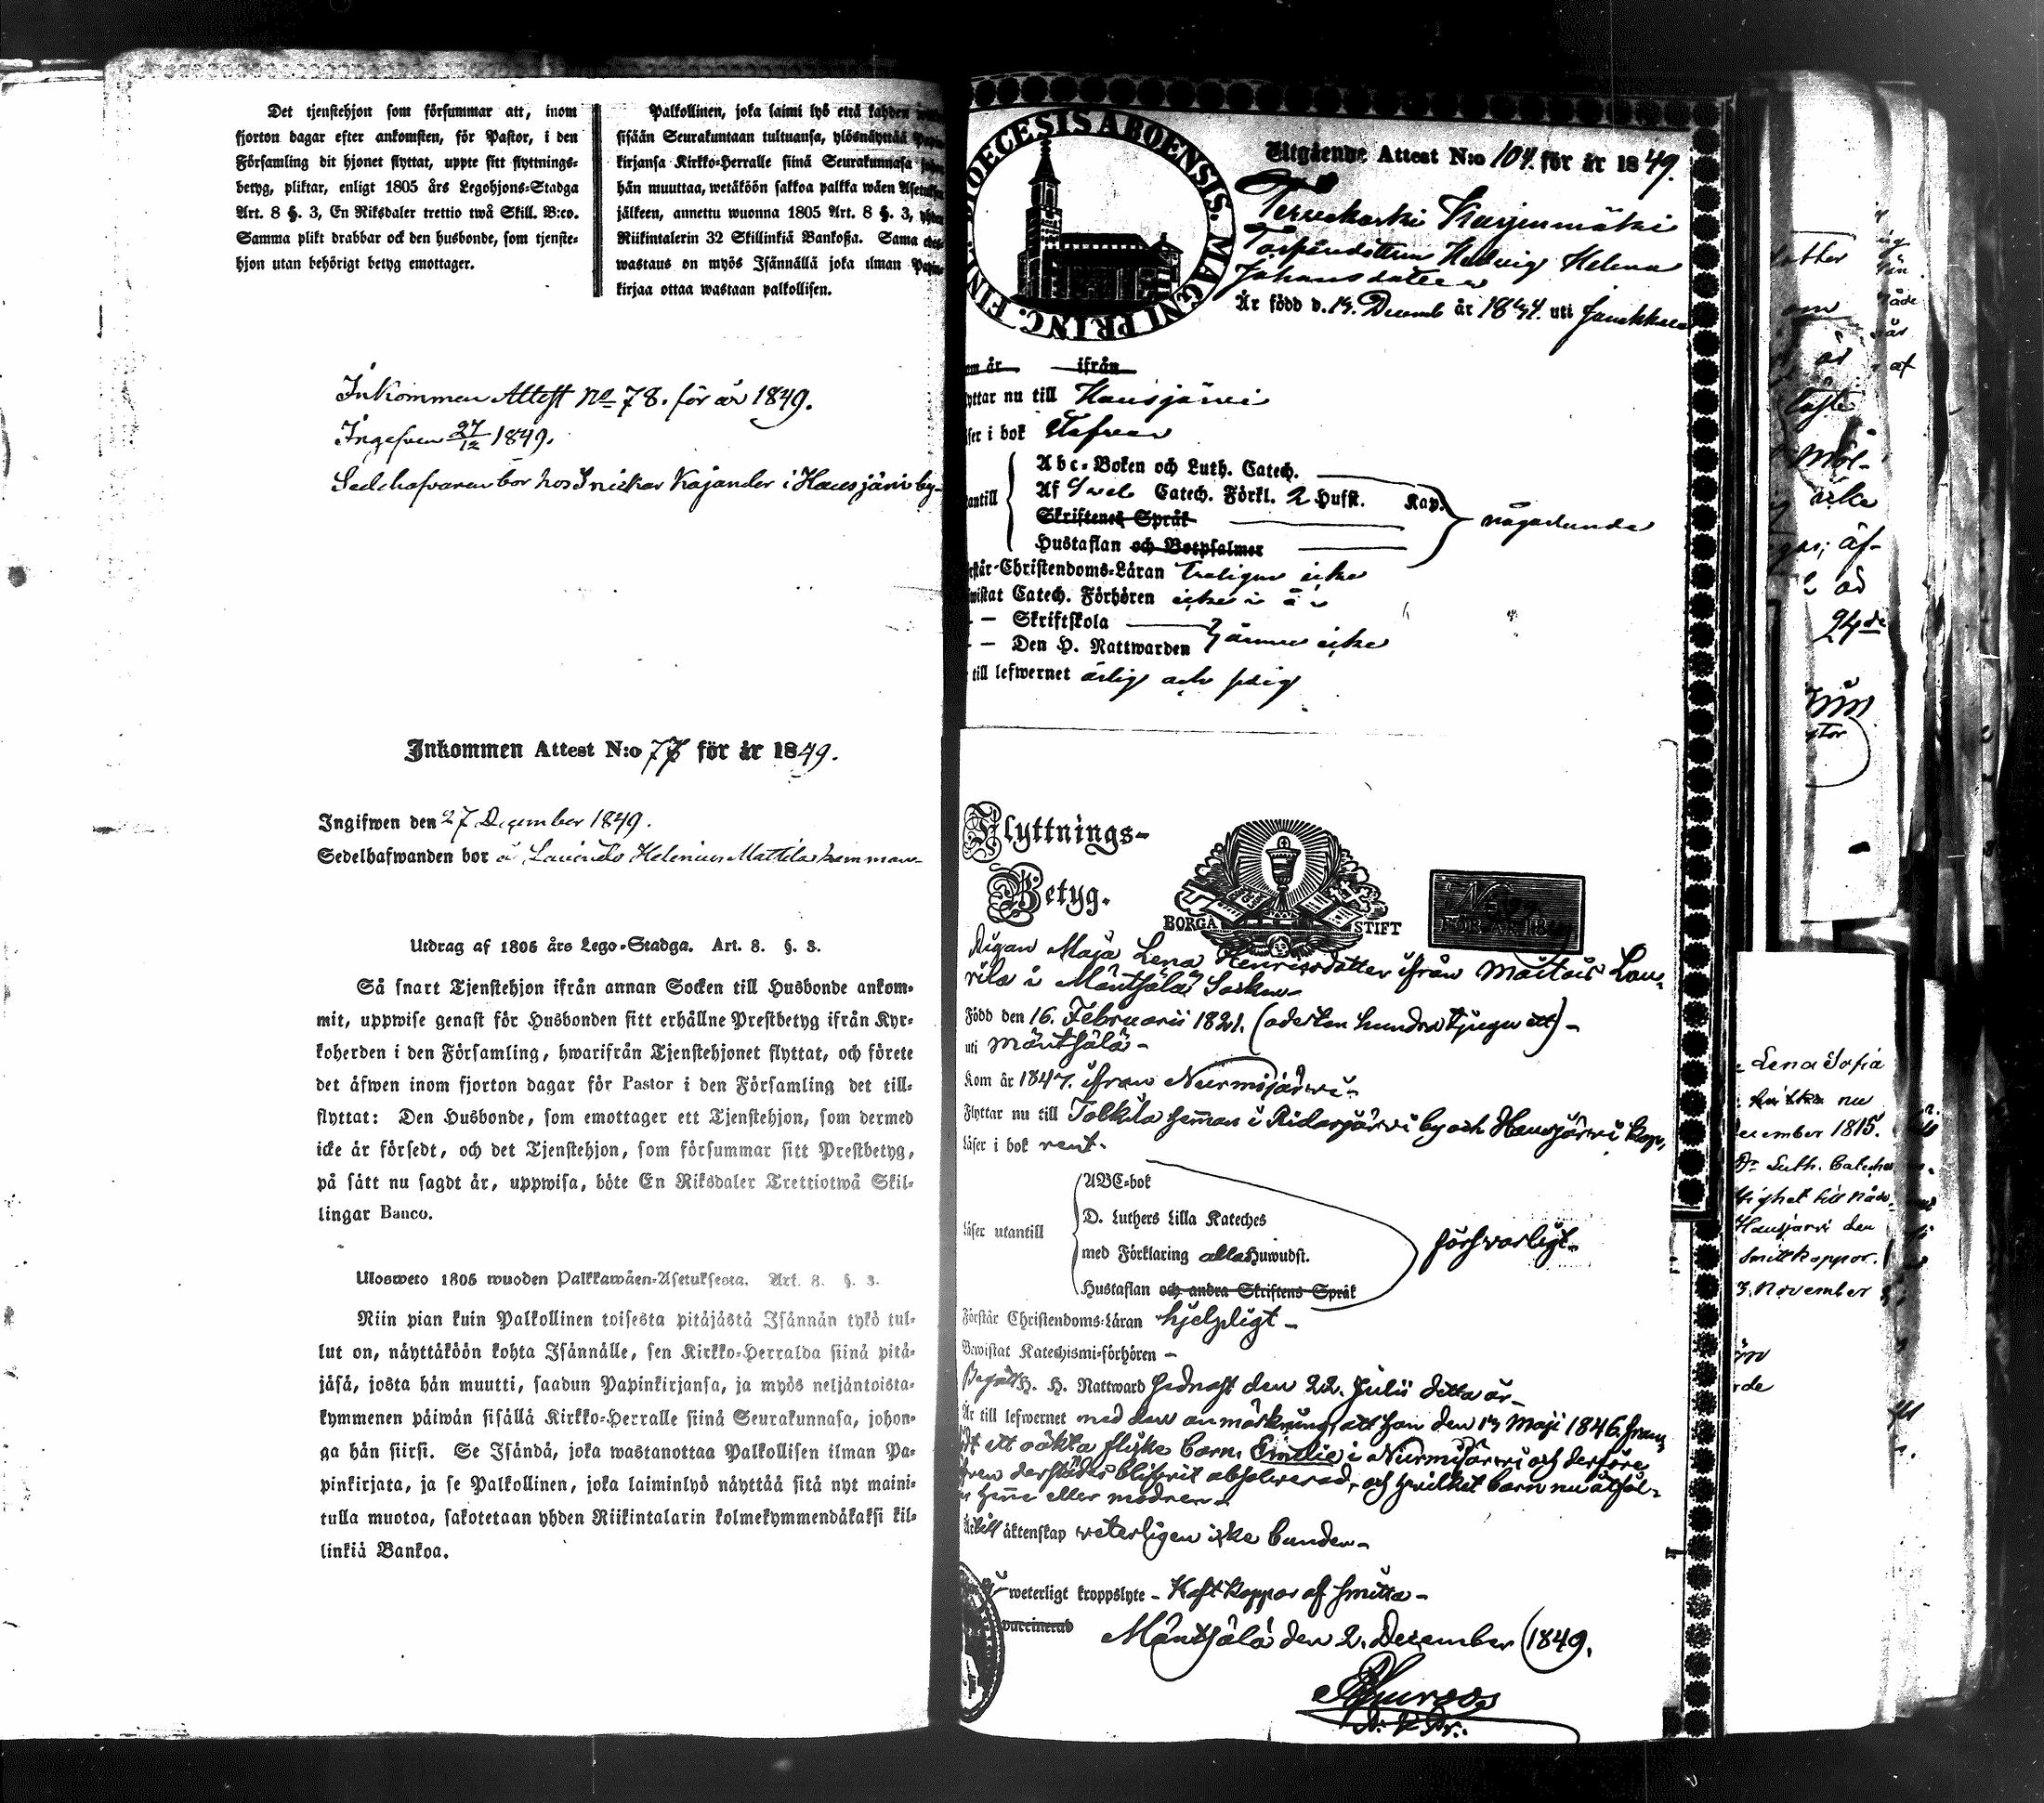 Det tjenstehjon som försummar att, inom
fjorton dagar efter ankomsten, för Pastor, i den
Församling dit hjonet flyttat, uppte sitt flyttnings-
betyg, pliktar, enligt 1805 års Legohjons-Stadga
Art. 8 §. 3, En Riksdaler trettio twå Skill. B:co.
Samma plikt drabbar ock den husbonde, som tjenste-
hjon utan behörigt betyg emottager.
Palkollinen, joka laimi lyö että kahden
sisään Seurakuntaan tultuansa, ylösnäyttää
kirjansa Kirkko-Herralle siinä Seurakunnasa
hän muuttaa, wetäköön sakkoa palkka wäen
jälkeen, annettu wuonna 1805 Art. 8 §. 3, yhden
Riikintalerin 32 Skillinkiä Bankoßa. Sama
wastaus on myös Isännällä joka ilman
kirjaa ottaa wastaan palkollisen.
Inkommen Attest No 78. för år 1849.
Ingifven 27/12 1849.
Sedelhafvaren bor hos Snickar Kajander i Hausjärvi by
Inkommen Attest N:o 77 för år 1849.
Ingifwen den 27 December 1849.
Sedelhafwanden bor å Helenius Mattila hemman
Utdrag af 1805 års Lego-Stadga. Art. 8. §. 3.
Så snart Tjenstehjon ifrån annan Socken till Husbonde ankom-
mit, uppwise genast för Husbonden sitt erhållne Prestbetyg ifrån Kyr-
koherden i den Församling, hwarifrån Tjenstehjonet flyttat, och förete
det äfwen inom fjorton dagar för Pastor i den Församling det till-
flyttat: Den Husbonde, som emottager ett Tjenstehjon, som dermed
icke är försedt, och det Tjenstehjon, som försummar sitt Prestbetyg,
på sätt nu sagdt är, uppwisa, böte En Riksdaler Trettiotwå Skil-
lingar Banco.
Ulosweto 1805 wuoden Palkkawäen-Asetuksesta. Art. 8. §. 3.
Niin pian kuin Palkollinen toisesta pitäjästä Isännän tykö tul-
lut on, näyttäköön kohta Isännälle, sen Kirkko-Herralda siinä pitä-
jäsä, josta hän muutti, saadun Papinkirjansa, ja myös neljäntoista-
kymmenen päiwän sisällä Kirkko-Herralle siinä Seurakunnasa, johon-
ga hän siirsi. Se Isändä, joka wastanottaa Palkollisen ilman Pa-
pinkirjata, ja se Palkollinen, joka laiminlyö näyttää sitä nyt maini-
tulla muotoa, sakotetaan yhden Riikintalarin kolmekymmendäkaksi kil-
linkiä Bankoa.
DIOECESIS ABOENSIS. MAGNI PRINC. FINL.
Utgående Attest N:o 104. för år 1849.
Terwekoski Harjunmäki
Torpardottren Hedvig Helena
Johansdotter
Är född d. 14. Decemb år 1834. uti Janakkala
om år ifrån
yttar nu till Hausjärvi
ser i bok Stafvar
Abc-Boken och Luth. Catech.
antill Af Catech. Förkl. 2 Hufst. Kap. någorlunda
Skriftenes Språk
Hustaflan och Botpsalmer
rstår Christendoms-Läran troligen icke
wistat Catech. Förhören icke i år
— Skriftskola
— Den H. Nattwarden ännu icke
till lefwernet ärlig och sedig
Flyttnings-
Betyg.
BORGÅ STIFT
FÖR ÅR 1849
Pigan Maja Lena Henricsdotter ifrån Lau-
rila i Mäntsälä Socken
Född den 16. Februarii 1821. (aderton hundra tjugu ett)
uti Mäntsälä
Kom år 1847. ifrån Nurmijärvi
Flyttar nu till Tolkila heman i Ridasjärvi by och Hausjärvi kap.
läser i bok rent.
ABC-bok
D. Luthers Lilla Kateches
läser utantill
med Förklaring alla Huwudst. försvarligt
Hustaflan och andra Skriftens Språk
Förstår Christendoms-Läran hjelpligt
Bewistat Katechismi-förhören
Begått H. H. Nattward sednast den 22. Julii detta år
Är till lefwernet med den anmärkning, att hon den 14 Maji 1846. fram-
ett oäkta flicke barn Emelie i Nurmijärvi och derföre
derstädes blifvit absolverad, och hvilket barn nu åtföl-
henne eller modren
Är till äktenskap veterligen icke bunden
weterligt kroppslyte Haft koppor af smitta
vaccinerad
Mäntsälä den 2. December 1849.
Lena Sofia
nu
December 1815.
Dr Luth. Cateches
Hausjärvi den
Smittkoppor.
3. November